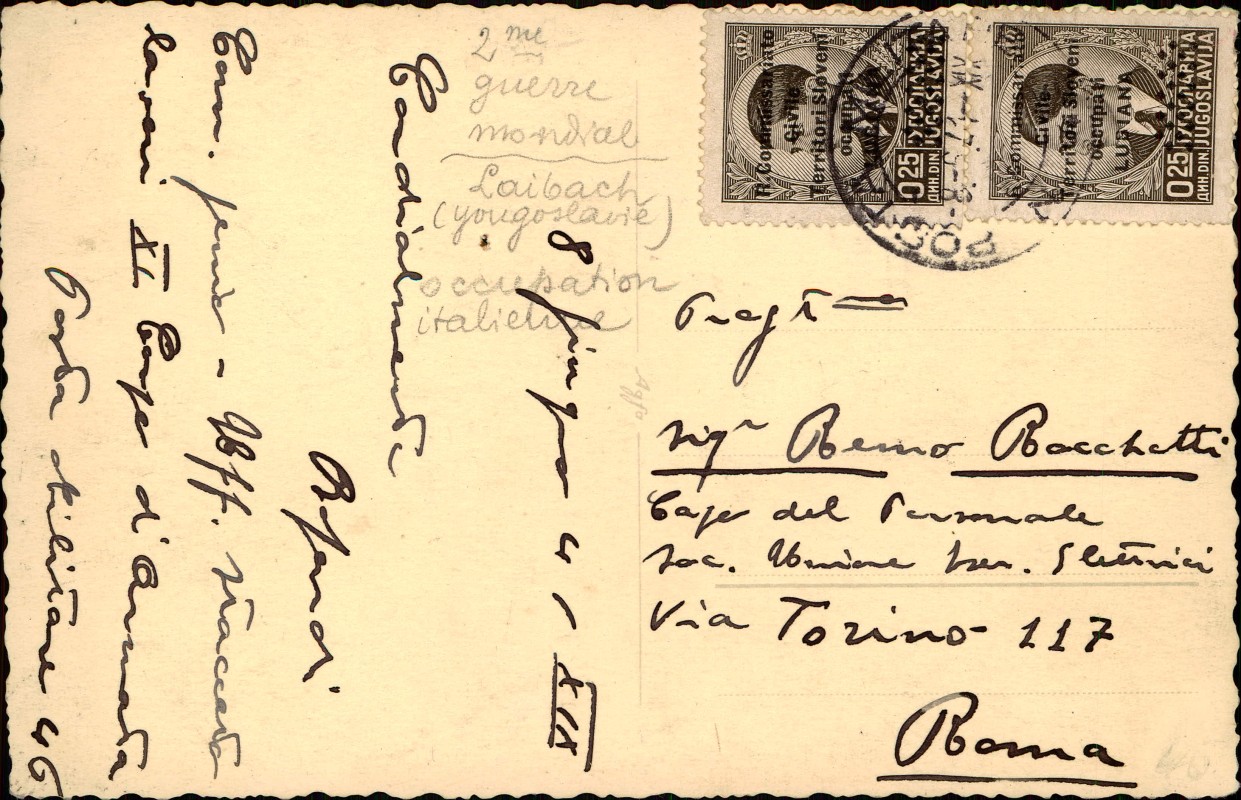 8 giugno 41 XIX
Cordialmente
Com. genio - Uff. staccato
lavori XI Corpo d'Armata
Posta Militare 46
2me
guerre
mondial
Laibach
(yougoslavie)
occupation
italienne
Agfa
R. Commissariato
Civile
Territori Sloveni
occupati
LUBIANA
0.25
ДИН. DIN
ЈУГОСЛАВИЈА
JUGOSLAVIJA
R. Commissariato
Civile
Territori Sloveni
occupati
LUBIANA
0.25
ДИН. DIN
ЈУГОСЛАВИЈА
JUGOSLAVIJA
POSTA
Pregt
sigr Remo Bacchetti
Capo del Personale
Soc. Unione Eser. Elettrici
Via Torino 117
Roma